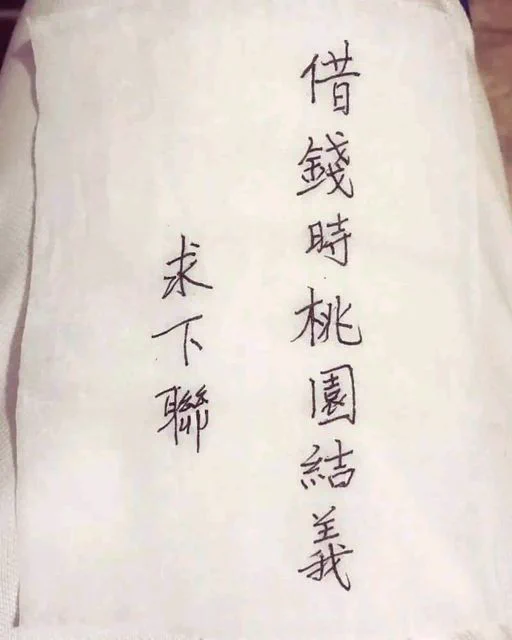 借錢時桃園結義
求下聯